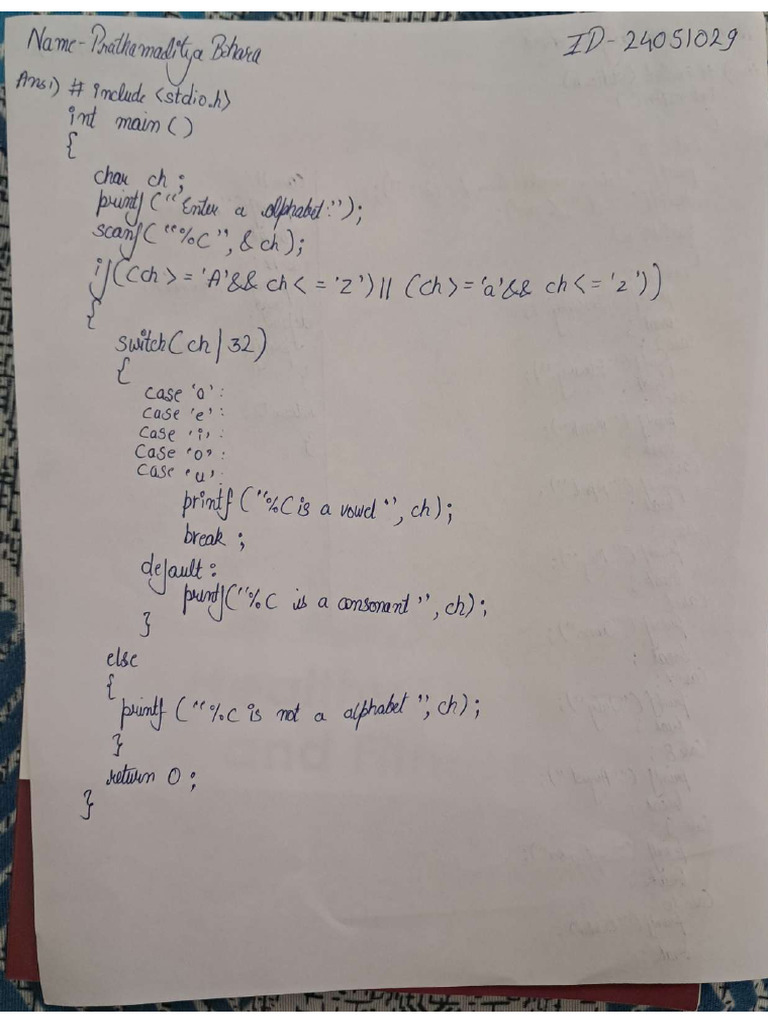 Name-Prathamaditya Bohara
ID-24051029
Ans1) # include <stdio.h>
int main ()
{
char ch ;
printf ("Enter a alphabet:");
scanf ("%C", & ch);
if ((ch >= 'A' && ch <= 'Z') || (ch >= 'a' && ch <= 'z'))
{
switch (ch | 32)
{
case 'a' :
case 'e' :
case 'i' :
case 'o' :
case 'u' :
printf ("%C is a vowel", ch);
break ;
default :
printf ("%C is a consonant", ch);
}
else
{
printf ("%C is not a alphabet", ch);
}
return 0 ;
}